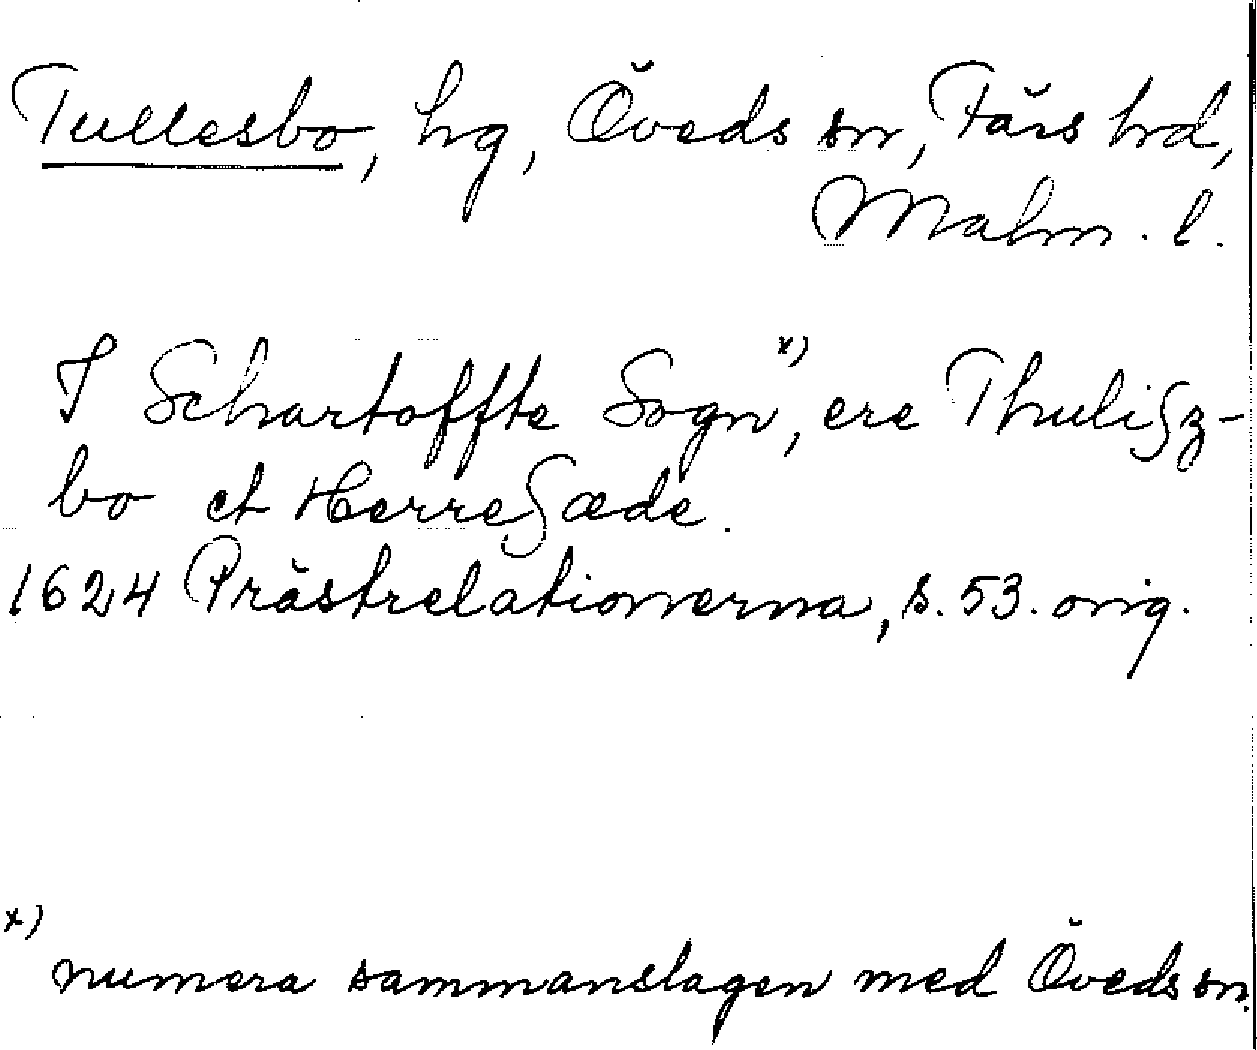 Tullesbo, hg, Öveds sn, Färs hd,
Malm. l.
I Schartoffte Sogn x), ere Thulißz-
bo et Herreßæde.
1624 Prästrelationerna, s. 53. orig.
x)
numera sammanslagen med Öveds sn.